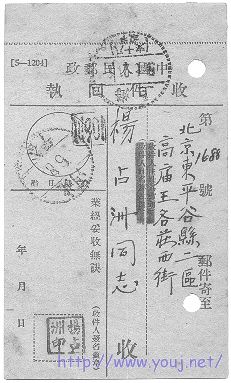 [S—1204]
中國人民郵政
收件回執
第1688號郵件寄至
北京東平谷縣二區
高庙王各莊西街
楊占洲同志 收
業經妥收無誤
(收件人簽名蓋章)
年 月 日
楊占洲印
http://www.youj.net/